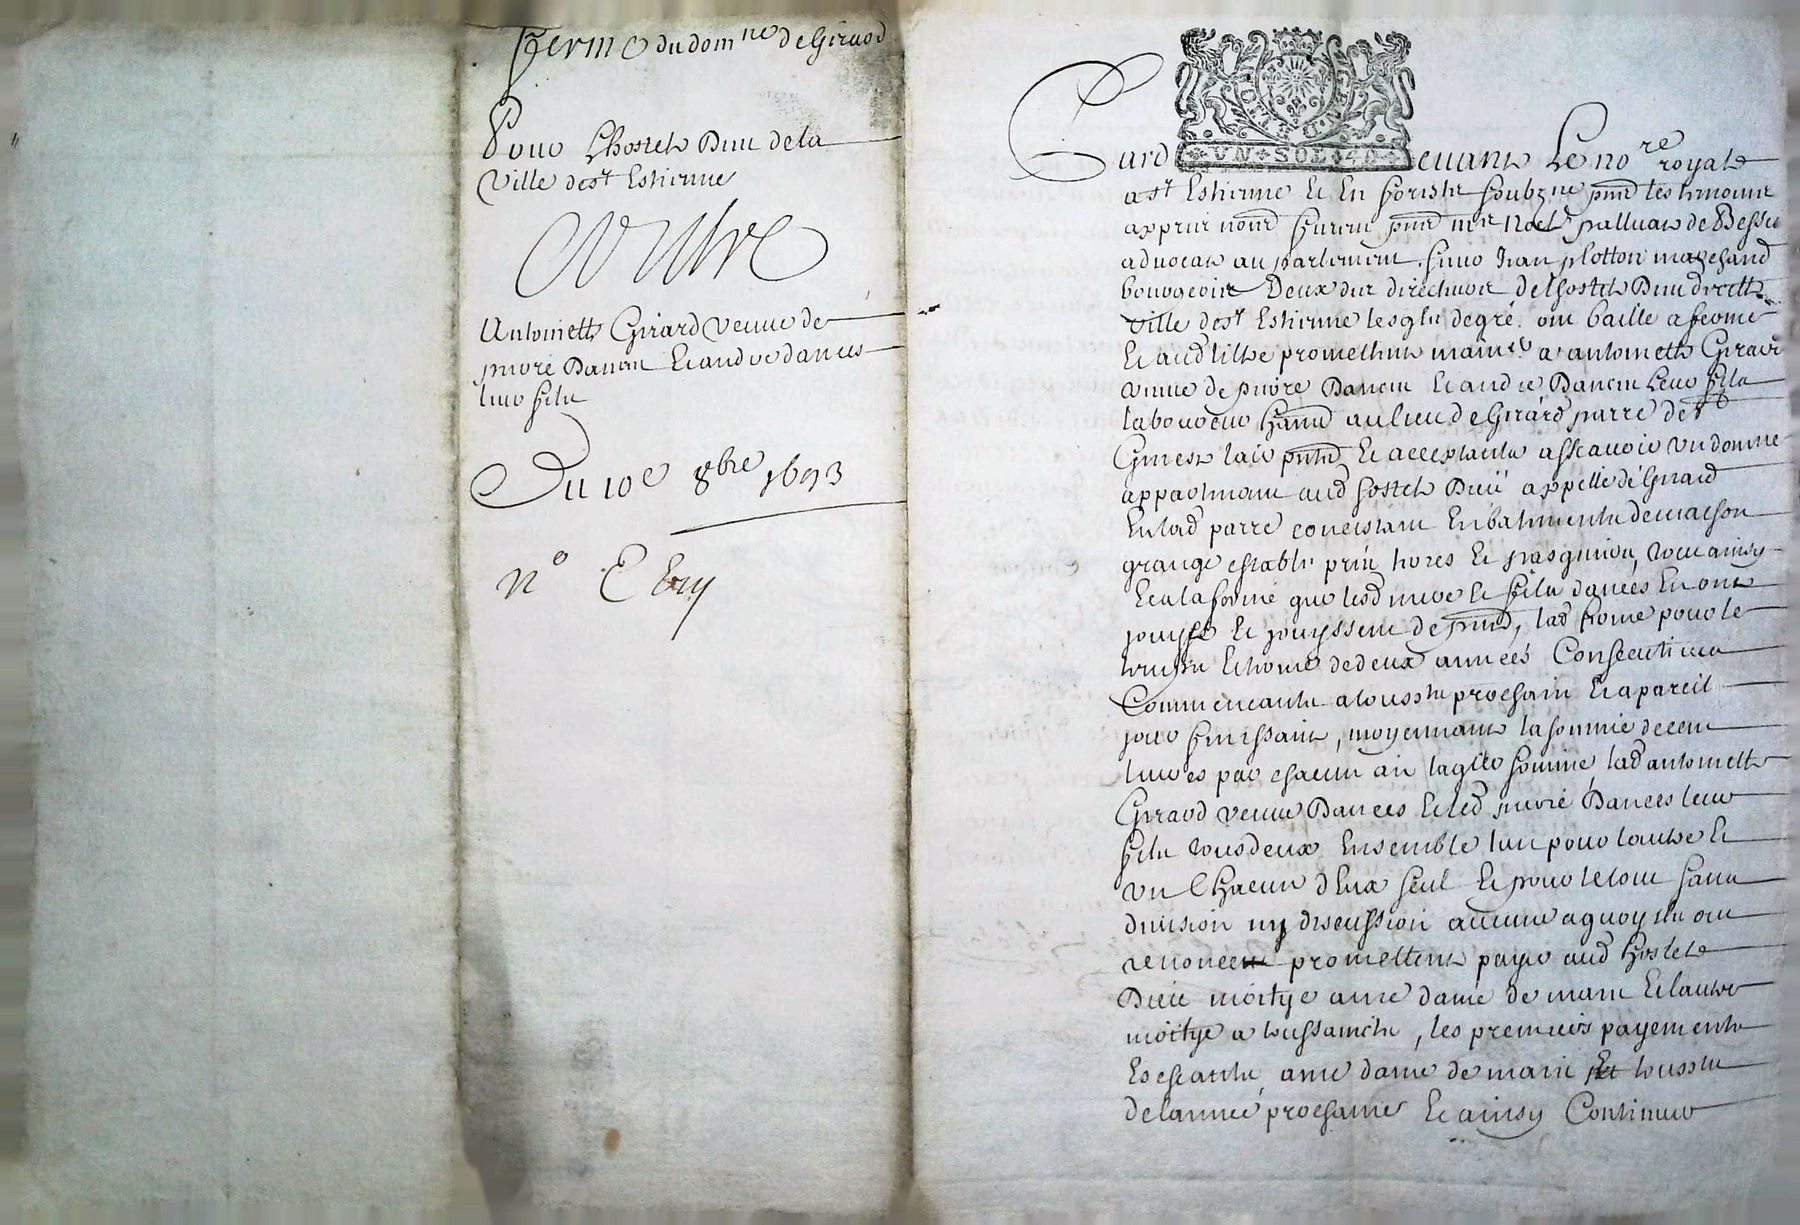 Ferme du dom.ne de Girard
Pour Lhostel Dieu de la
Ville de st Estienne
Contre
Antoinette Girard veuve de
pierre Dances Et andre dances
leur fils
Du 10e 8bre 1693
N°
Pard evant Le no.re royal
a st Estienne Et En forestz soubz.ne pnt tesmoins
apres nomes furent pnt mre Noel palluat de Besset
advocat au parlement, sieur Jean plotton marchand
bourgeois Deux des directeurs de Lhostel Dieu
Ville de st Estienne lesqls de gre. ont baille a ferme
Et aud tiltre promettent maint.r a antoinette Girard
veuve de pierre Dances Et andre Dances Leur fils
laboureur hant au lieu de Girard parre de st
Genest lair pnts Et acceptants assavoir un domne
appartenant aud hostel Dieu appelle de Girard
En lad parre consistant En batiments de maison
grange estable prés hores Et pasquiers, tout ainsy
Et a la forme que lesd mere Et fils dances En ont
jouyst Et jouyssent de pnt, lad ferme pour le
temps Et terme de deux années Consecutives
Commencants a toussts prochain Et a pareil
jour finissant, moyennant la somme de cent
livres par chacun an laqlle somme lad antoinette
Girard veuve Dances Et led Dances leur
fils tous deux Ensemble lun pour lautre Et
un Chacun d Eux seul Et pour le tout sans
division ny discussion aucune a quoy ils ont
renoncé promettent payer aud hostel
Dieu moitye a nre dame de mars Et lautre
moitye a toussaincts, les premiers payements
Escheants a nre dame de mars Et toussts
de lannée prochaine Et ainsy Continuer